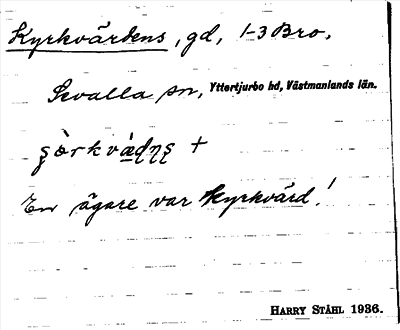 Kyrkvärdens, gd, 1-3 Bro.
Sevalla sn, Yttertjurbo hd, Västmanlands län.
+
En ägare var kyrkvärd!
HARRY STÅHL 1936.